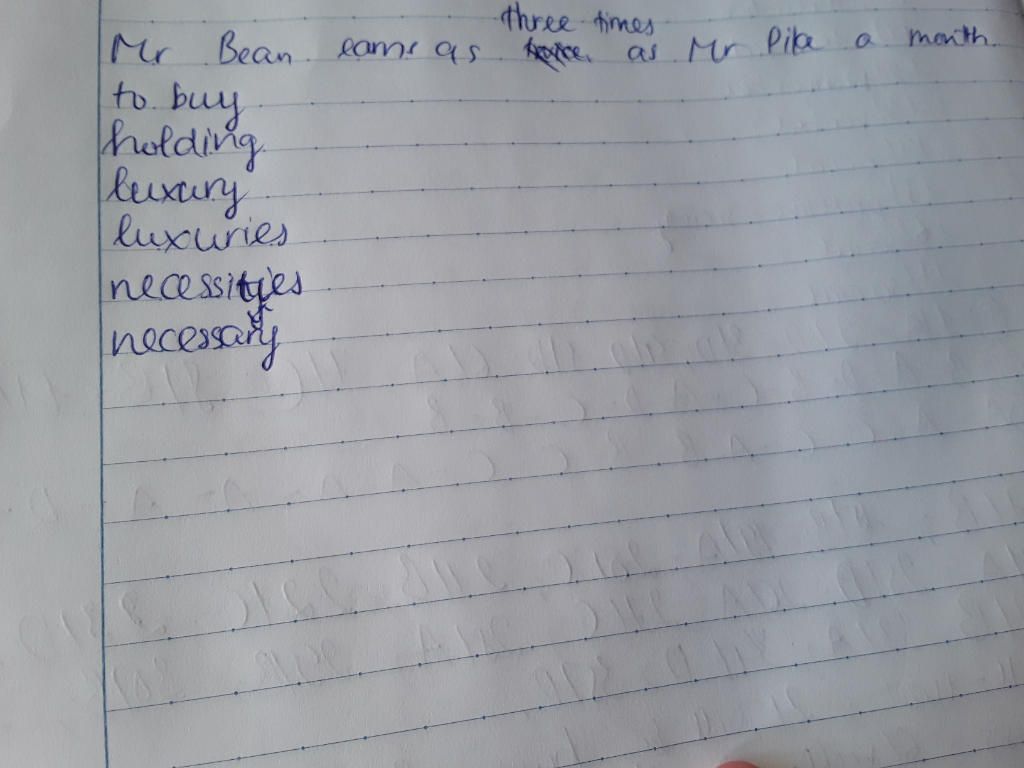 three times
Mr Bean earns as twice as Mr Pike a month.
to buy
holding
luxury
luxuries
necessities
necessary